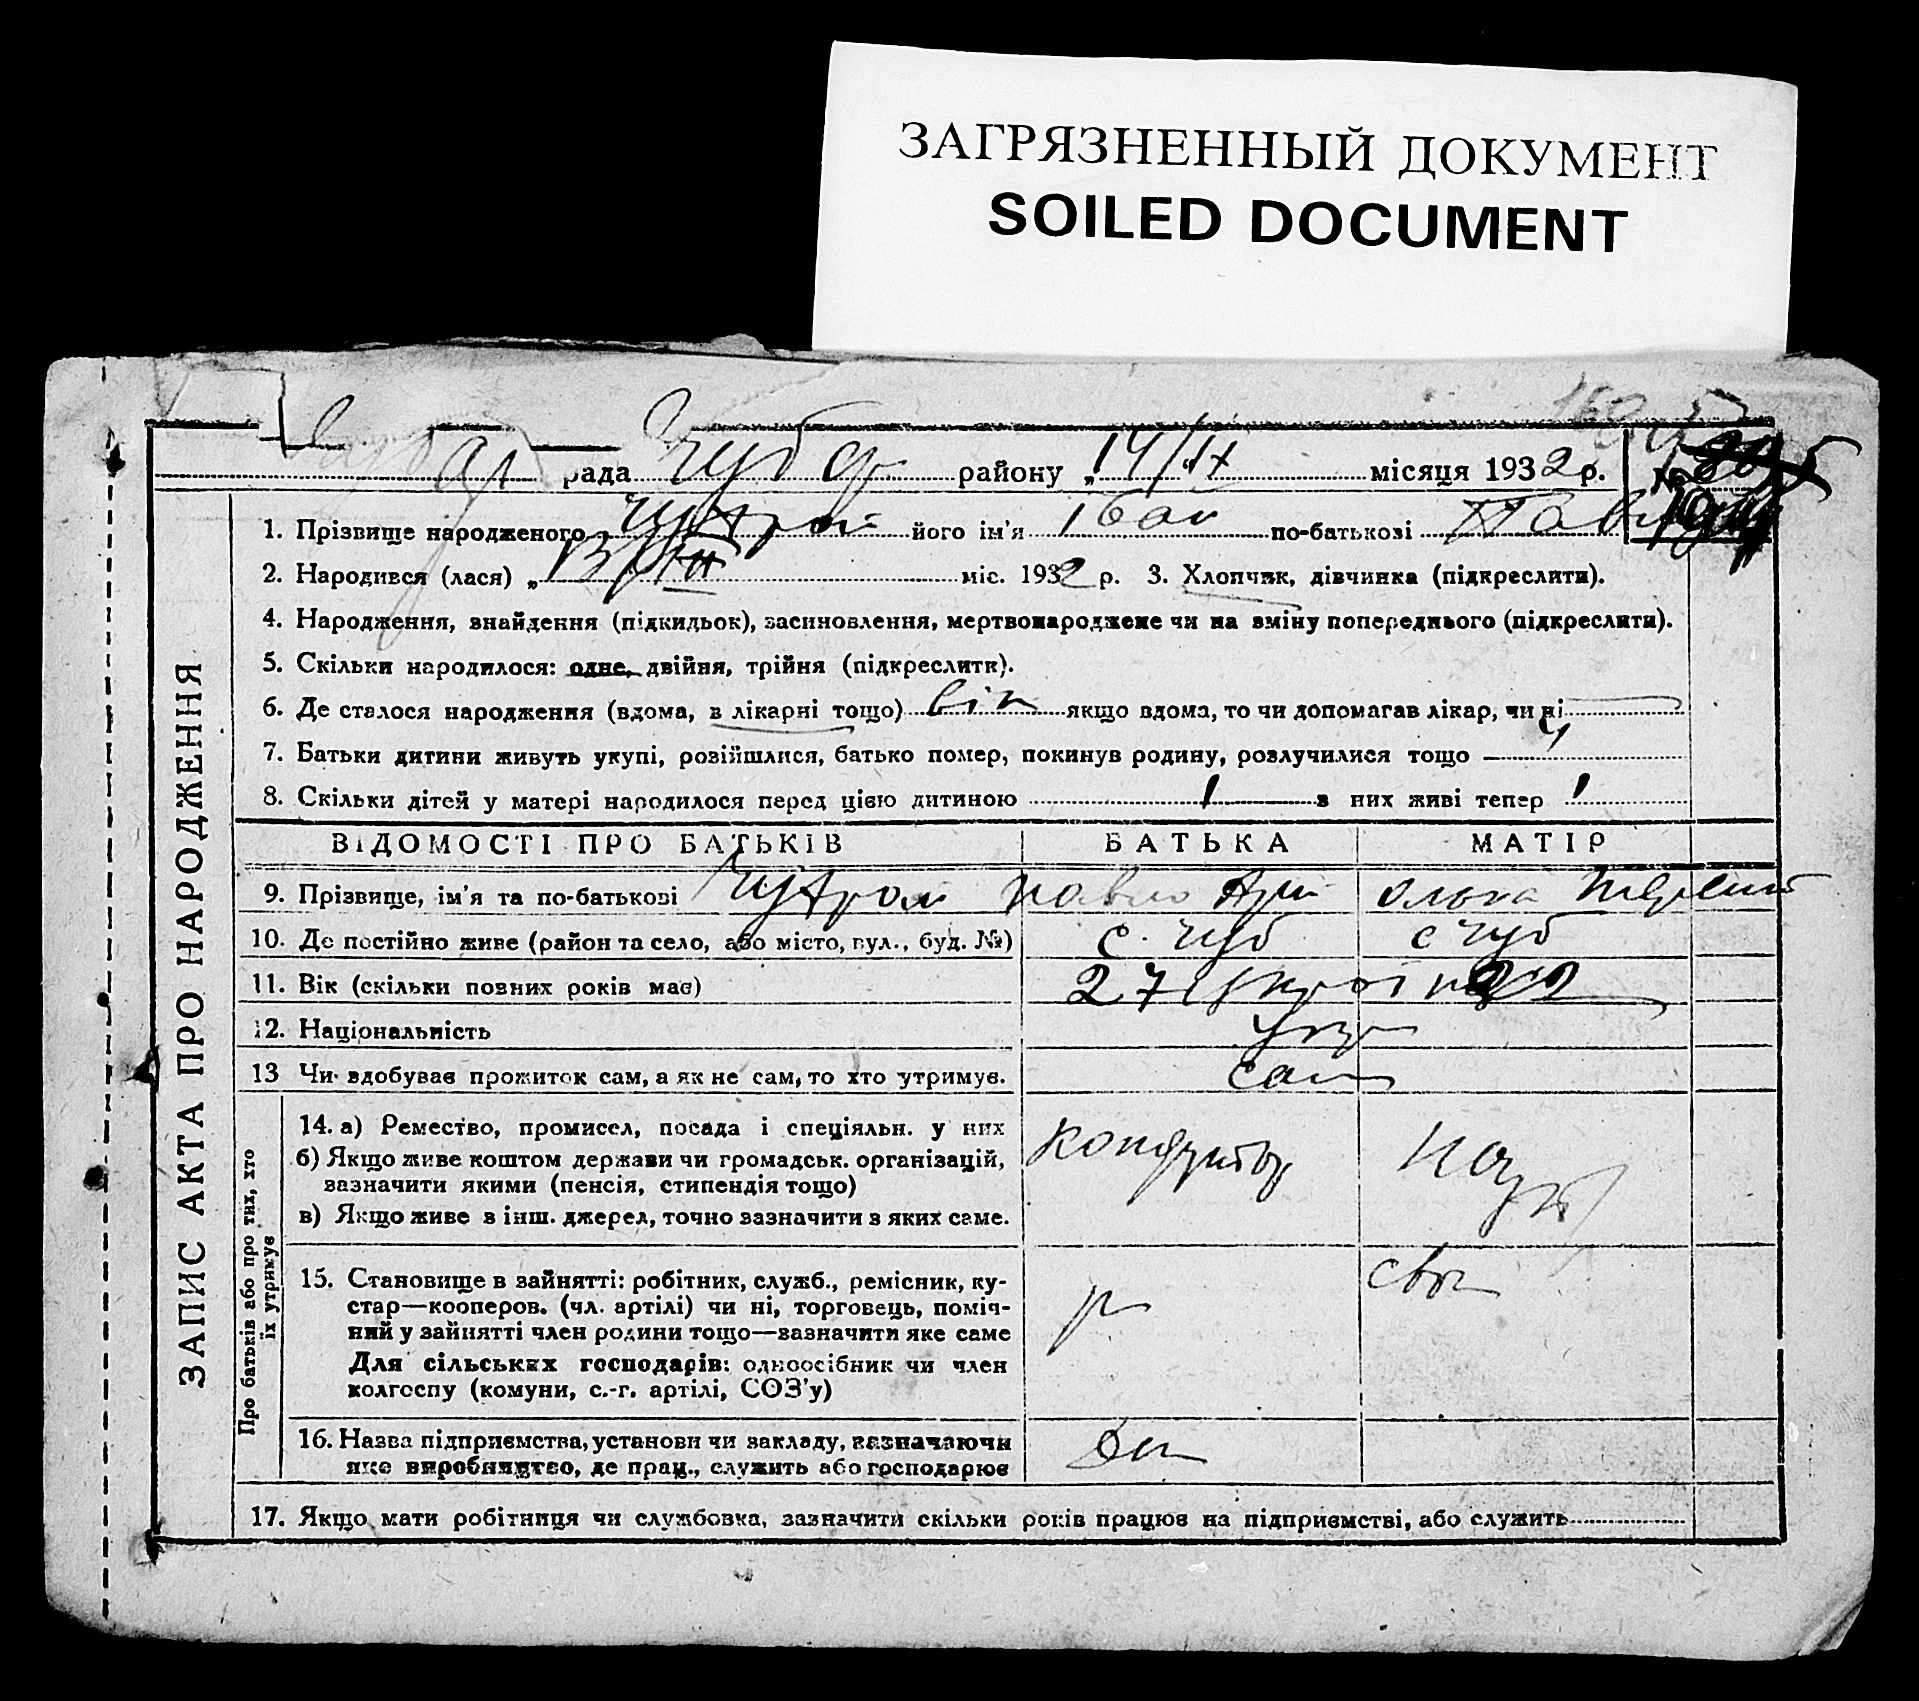 ЗАГРЯЗНЕННЫЙ ДОКУМЕНТ
SOILED DOCUMENT
рада Чуб району „14/ІХ місяця 1932 р. №
1. Прізвище народженого його ім'я Іван по-батькові
2. Народився (лася) „13/ міс. 1932 р. 3. Хлопчик, дівчинка (підкреслити).
4. Народження, знайдення (підкидьок), засиновлення, мертвонароджене чи на зміну попереднього (підкреслити).
5. Скільки народилося: одне, двійня, трійня (підкреслити).
6. Де сталося народження (вдома, в лікарні тощо) якщо вдома, то чи допомагав лікар, чи ні
7. Батьки дитини живуть укупі, розійшлися, батько помер, покинув родину, розлучилися тощо
8. Скільки дітей у матері народилося перед цією дитиною 1 з них живі тепер 1
ВІДОМОСТІ ПРО БАТЬКІВ БАТЬКА МАТІР
9. Прізвище, ім'я та по-батькові Павло Ольга
10. Де постійно живе (район та село, або місто, вул., буд. №) с. Чуб с Чуб
11. Вік (скільки повних років має) 27 22
12. Національність Укр
13 Чи здобуває прожиток сам, а як не сам, то хто утримує. сам
14. а) Ремество, промисел, посада і спеціяльн. у них кондуктор
б) Якщо живе коштом держави чи громадськ. організацій,
зазначити якими (пенсія, стипендія тощо)
в) Якщо живе з інш. джерел, точно зазначити з яких саме.
15. Становище в зайнятті: робітник, служб., ремісник, ку-
стар—кооперов. (чл. артілі) чи ні, торговець, поміч-
ний у зайнятті член родини тощо—зазначити яке саме р
Для сільських господарів: одноосібник чи член
колгоспу (комуни, с.-г. артілі, СОЗ'у)
16. Назва підприємства, установи чи закладу, зазначаючи
яке виробництво, де прац., служить або господарює
17. Якщо мати робітниця чи службовка, зазначити скільки років працює на підприємстві, або служить
ЗАПИС АКТА ПРО НАРОДЖЕННЯ
Про батьків або про тих, хто
їх утримує